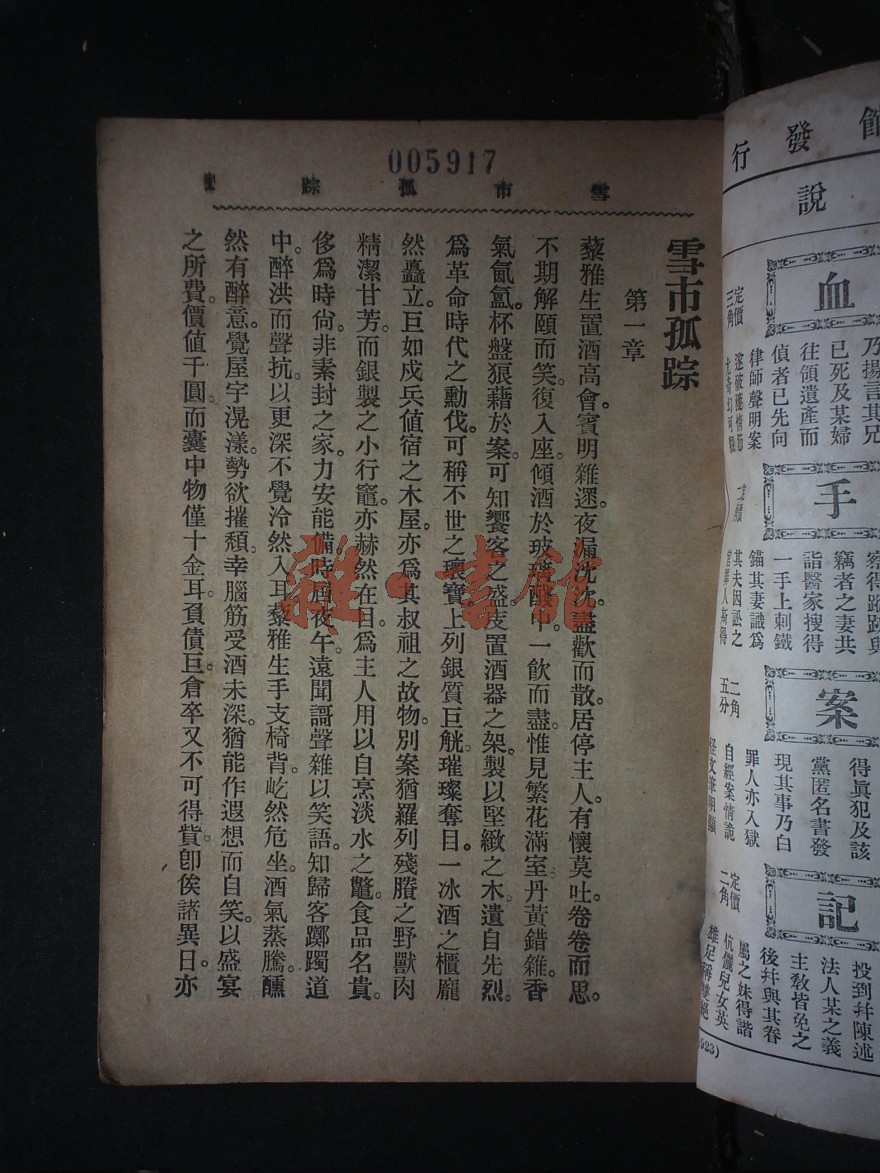 005917
雪市孤踪
雪市孤踪
第一章
藜雅生置酒高會。賓明雜遝。夜漏沈沈。盡歡而散。居停主人。有懷莫吐。卷卷而思。
不期解頤而笑。復入座。傾酒於玻璃醆中。一飲而盡。惟見繁花滿室。丹黃錯雜。香
氣氤氳。杯盤狼藉於案。可知饗客之盛。度置酒器之架。製以堅緻之木。遺自先烈。
爲革命時代之勳伐。可稱不世之瓌寶。上列銀質巨觥。璀璨奪目。一冰酒之櫃。龐
然矗立。巨如戍兵値宿之木屋。亦爲其叔祖之故物。別案猶羅列殘賸之野獸肉
精潔甘芳。而銀製之小行竈。亦赫然在目。爲主人用以自烹淡水之鼈。食品名貴。
侈爲時尙。非素封之家。力安能備。時届夜午。遠聞謌聲雜以笑語。知歸客躑躅道
中。醉洪而聲抗。以更深不覺泠然入耳。藜雅生手支椅背。屹然危坐。酒氣蒸騰。醺
然有醉意。覺屋宇滉漾。勢欲摧頽。幸腦筋受酒未深。猶能作遐想而自笑。以盛宴
之所費。價値千圓。而囊中物僅十金耳。負債巨。倉卒又不可得貲。卽俟諸異日。亦
館發行
說
血手案記
定價
三角
乃揚言其兄
已死及某婦
往領遺產而
偵者已先向
律師聲明案
竊者之妻共
詣醫家搜得
一手上刺鐵
錨其妻識爲
其夫因訟之
二角
五分
得眞犯及該
黨匿名書發
現其事乃白
罪人亦入獄
自經案情詭
定價
二角
投到幷陳述
法人某之義
主敎皆免之
後幷與其眷
屬之妹得諧
伉儷兒女英
雜·書館